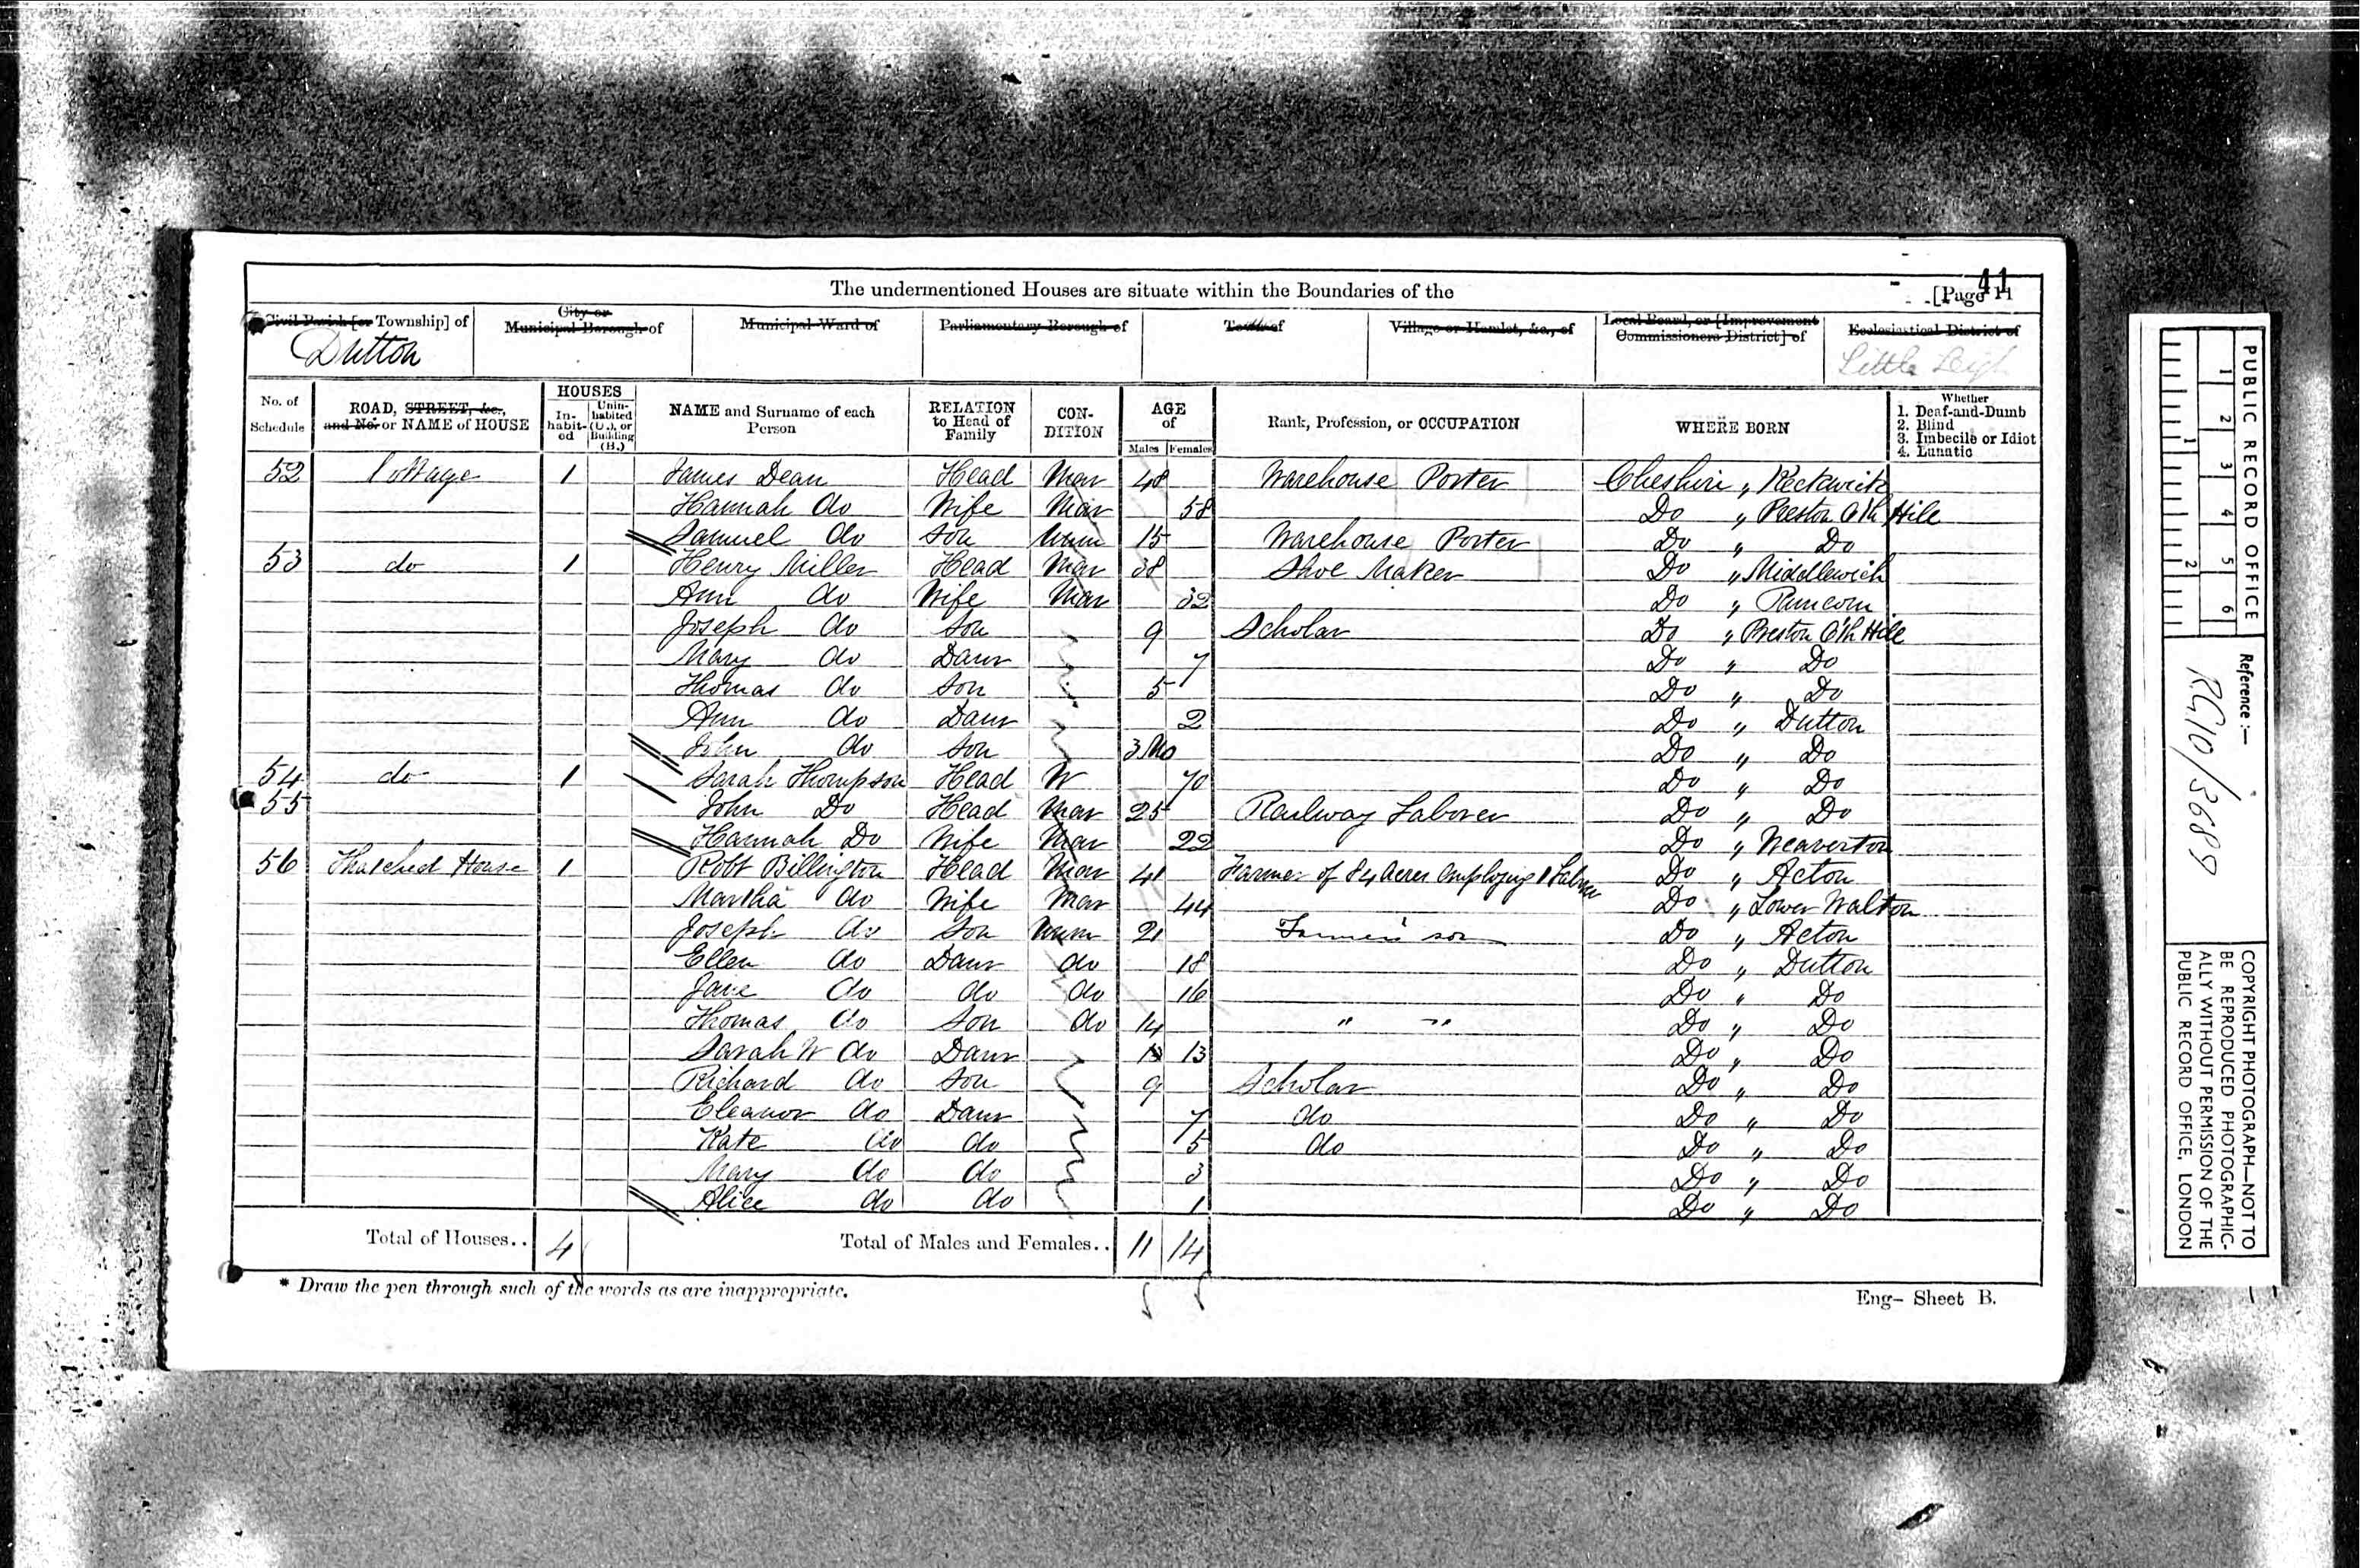 The undermentioned Houses are situate within the Boundaries of the
41
[Page 11
Civil Parish [or Township] of
City or Municipal Borough of
Municipal Ward of
Parliamentary Borough of
Town of
Village or Hamlet, &c., of
Local Board, or [Improvement Commissioners District] of
Ecclesiastical District of
Dutton
Little Leigh
No. of Schedule
ROAD, STREET, &c., and No. or NAME of HOUSE
HOUSES
In-habit-ed
Unin-habited (U.), or Building (B.)
NAME and Surname of each Person
RELATION to Head of Family
CON-DITION
AGE of
Males Females
Rank, Profession, or OCCUPATION
WHERE BORN
Whether
1. Deaf-and-Dumb
2. Blind
3. Imbecile or Idiot
4. Lunatic
52 Cottage 1 James Dean Head Mar 48 Warehouse Porter Cheshire „ Keckwick
Hannah do Wife Mar 58 Do „ Preston O'th Hill
Samuel do Son Unm 15 Warehouse Porter Do „ Do
53 do 1 Henry Miller Head Mar 38 Shoe Maker Do „ Middlewich
Ann do Wife Mar 32 Do „ Runcorn
Joseph do Son 9 Scholar Do „ Preston O'th Hill
Mary do Daur 7 Do „ Do
Thomas do Son 5 Do „ Do
Ann do Daur 2 Do „ Dutton
John do Son 3 Mo Do „ Do
54 do 1 Sarah Thompson Head W 70 Do „ Do
55 John Do Head Mar 25 Railway Laborer Do „ Do
Hannah Do Wife Mar 22 Do „ Weaverton
56 Thatched House 1 Robt Billington Head Mar 41 Farmer of 84 Acres Employing 1 Do „ Acton
Martha do Wife Mar 44 Do „ Lower Walton
Joseph do Son Unm 21 Farmer's son Do „ Acton
Ellen do Daur do 18 Do „ Dutton
Jane do do do 16 Do „ Do
Thomas do Son do 14 " " Do „ Do
Sarah W do Daur 13 Do „ Do
Richard do Son 9 Scholar Do „ Do
Eleanor do Daur 7 do Do „ Do
Kate do do 5 do Do „ Do
Mary do do 3 Do „ Do
Alice do do 1 Do „ Do
Total of Houses.. 4 Total of Males and Females.. 11 14
* Draw the pen through such of the words as are inappropriate.
Eng- Sheet B.
PUBLIC RECORD OFFICE
1 2 3 4 5 6
1 2
Reference :—
RG10/3689
COPYRIGHT PHOTOGRAPH—NOT TO
BE REPRODUCED PHOTOGRAPHIC-
ALLY WITHOUT PERMISSION OF THE
PUBLIC RECORD OFFICE, LONDON